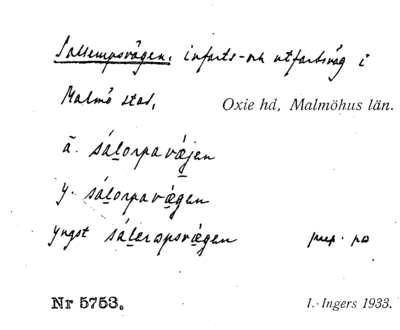 Sallerupsvägen, infarts- och utfartsväg i
Malmö stad,
Oxie hd, Malmöhus län.
ä. sálorpavæjen
y. sálorpavægen
yngst sálerøpsvægen
prep. på
Nr 5753.
I. Ingers 1933.